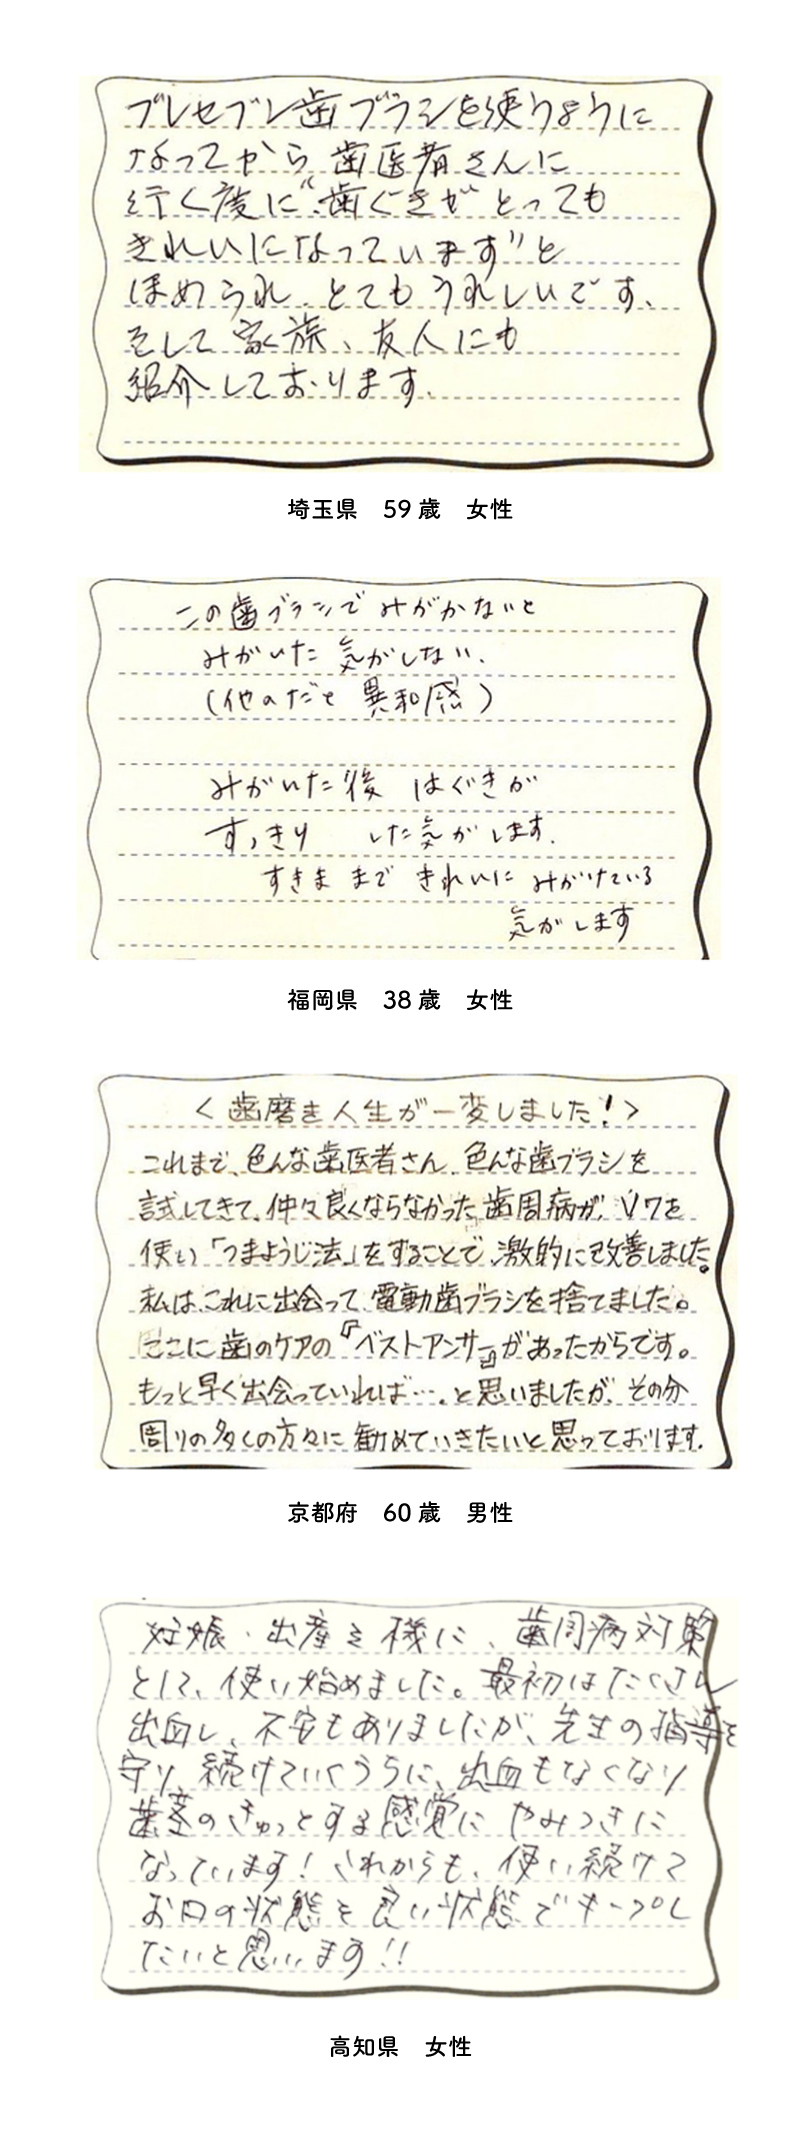 ブレセブレ歯ブラシを使うように
なってから歯医者さんに
行く度に“歯ぐきがとっても
きれいになっています”と
ほめられ、とてもうれしいです。
そして家族、友人にも
紹介しております。
埼玉県　59歳　女性
この歯ブラシでみがかないと
みがいた気がしない。
(他のだと 異和感)
みがいた後 はぐきが
すっきり した気がします。
すきま まで きれいに みがけている
気がします
福岡県　38歳　女性
＜歯磨き人生が一変しました！＞
これまで、色んな歯医者さん、色んな歯ブラシを
試してきて、仲々良くならなかった歯周病が、V7を
使い「つまようじ法」をすることで、激的に改善しました。
私は、これに出会って、電動歯ブラシを捨てました。
ここに歯のケアの『ベストアンサー』があったからです。
もっと早く出会っていれば…。と思いましたが、その分
周りの多くの方々に勧めていきたいと思っております。
京都府　60歳　男性
妊娠・出産を機に、歯周病対策
として、使い始めました。最初はたくさん
出血し、不安もありましたが、先生の指導を
守り、続けていくうちに、出血もなくなり
歯茎のきゅっとする感覚に やみつきに
なっています！これからも、使い続けて
お口の状態を良い状態でキープし
たいと思います!!
高知県　女性